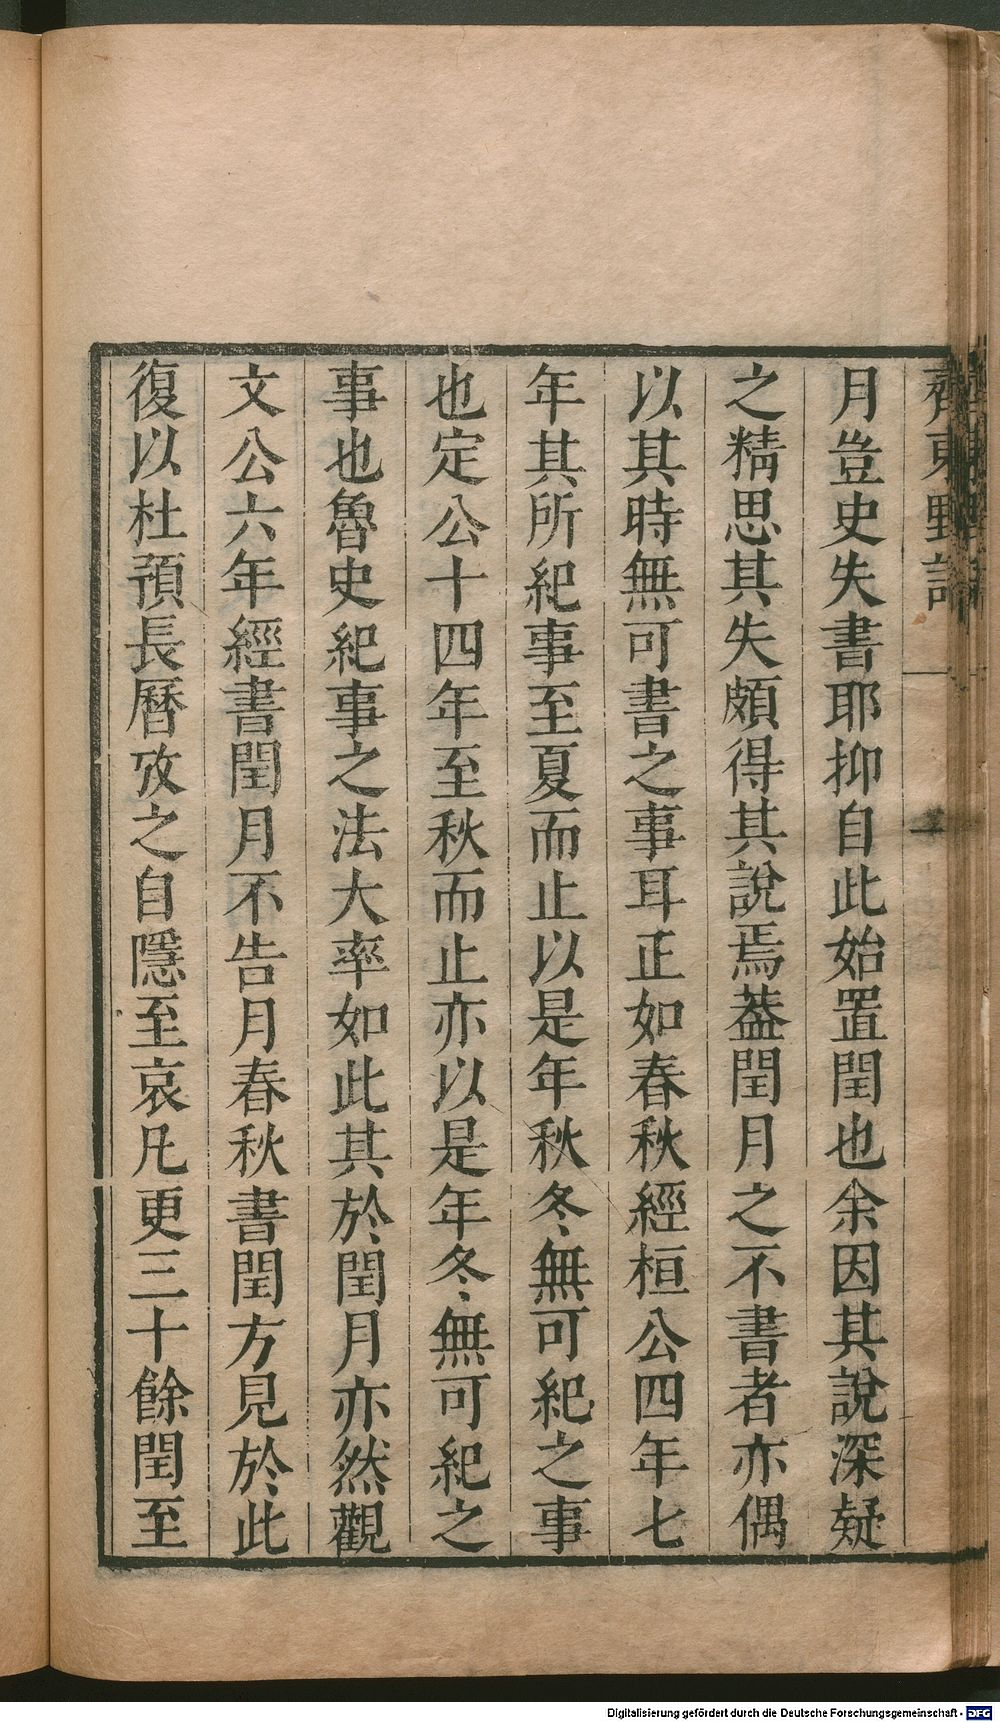 齊東野語
月豈史失書耶抑自此始置閏也余因其說深疑
之精思其失頗得其說焉葢閏月之不書者亦偶
以其時無可書之事耳正如春秋經桓公四年七
年其所紀事至夏而止以是年秋冬無可紀之事
也定公十四年至秋而止亦以是年冬無可紀之
事也魯史紀事之法大率如此其於閏月亦然觀
文公六年經書閏月不告月春秋書閏方見於此
復以杜預長曆攷之自隱至哀凡更三十餘閏至
Digitalisierung gefördert durch die Deutsche Forschungsgemeinschaft - DFG